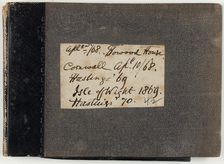 Apl 2nd/68. Howood House
Cornwall Apl 10/68.
Hastings '69
Isle of Wight 1869.
Hastings '70.